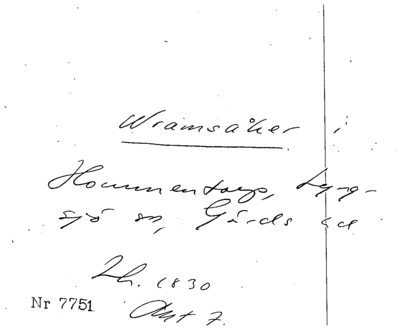 Wramsåker i
Hommentorp, Lyng-
sjö sn, Gärds hd
Lh. 1830
Nr 7751
Akt 7.